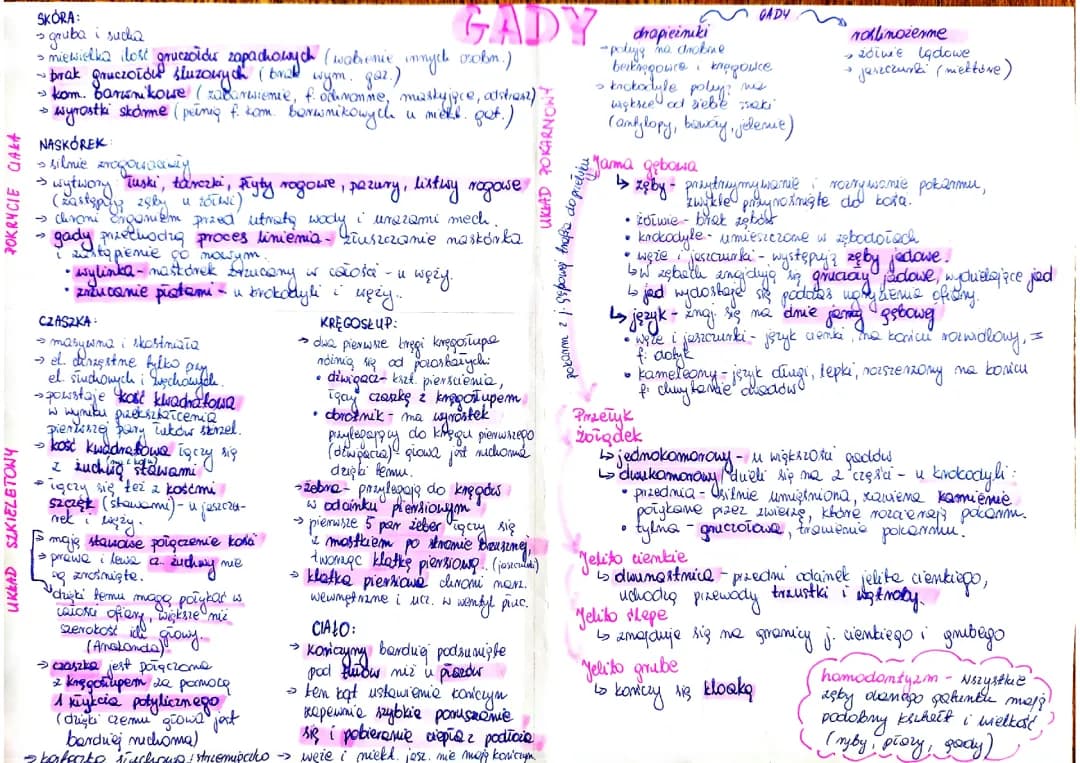 GADY
POKRYCIE CIAŁA
SKÓRA:
→ gruba i sucha
→ niewielka ilość gruczołów zapachowych (wabienie innych osobn.)
→ brak gruczołów śluzowych (brak wym. gaz.)
→ kom. barwnikowe (zabarwienie, f. ochronne, maskujące, odstrasz)
→ wyrostki skórne (pełnią f. kom. barwnikowych u niekt. gat.)
NASKÓREK:
→ silnie zrogowaciały
→ wytwory łuski, tarczki, płyty rogowe, pazury, listwy rogowe
(zastępują zęby u żółwi)
→ chroni organizm przed utratą wody i urazami mech.
→ gady przechodzą proces linienia - złuszczanie naskórka
i zastąpienie go nowym.
• wylinka - naskórek zrzucany w całości - u węży.
• zrzucanie płatami - u krokodyli i węży.
UKŁAD SZKIELETOWY
CZASZKA:
→ masywna i skostniała
→ el. chrzęstne tylko przy
el. słuchowych i węchowych.
→ powstaje kość kwadratowa
w wyniku przekształcenia
pierwszej pary łuków skrzel.
→ kość kwadratowa łączy się
z żuchwą stawami
→ łączy się też z kośćmi
szczęk (stawami) - u jaszczu-
rek i węży.
→ mają stawowe połączenie kości
→ prawa i lewa cz. żuchwy nie
są zrośnięte.
dzięki temu mogą połykać w
całości ofiary, większe niż
szerokość ich głowy.
(Anakonda)
→ czaszka jest połączona
z kręgosłupem za pomocą
1 kłykcia potylicznego
(dzięki czemu głowa jest
bardziej ruchoma)
→ kosteczka słuchowa: strzemiączko
KRĘGOSŁUP:
→ dwa pierwsze kręgi kręgosłupa
różnią się od pozostałych:
• dźwigacz - kszt. pierścienia,
łączy czaszkę z kręgosłupem
• obrotnik - ma wyrostek
przylegający do kręgu pierwszego
(dźwigacza) głowa jest ruchoma
dzięki temu.
→ żebra - przylegają do kręgów
w odcinku piersiowym
→ pierwsze 5 par żeber łączy się
z mostkiem po stronie brzusznej,
tworząc klatkę piersiową. (jaszczurki)
→ klatka piersiowa chroni narz.
wewnętrzne i ucz. w wentyl płuc.
CIAŁO:
→ kończyny bardziej podsunięte
pod tułów niż u płazów
→ ten kąt ustawienia kończyn
zapewnia szybkie poruszanie
się i pobieranie ciepła z podłoża
→ węże i niekt. jasz. nie mają kończyn
UKŁAD POKARMOWY
GADY
drapieżniki
→ polują na drobne
bezkręgowce i kręgowce
→ krokodyle polują na
większe od siebie ssaki
(antylopy, bawoły, jelenie)
roślinożerne
→ żółwie lądowe
→ jaszczurki (niektóre)
pokarm z j. gębowej trafia do przełyku
Jama gębowa
↳ zęby - przytrzymywanie i rozrywanie pokarmu,
zwykle przyrośnięte do kości.
• żółwie - brak zębów
• krokodyle - umieszczone w zębodołach
• węże i jaszczurki - występują zęby jadowe.
↳ W zębach znajdują się gruczoły jadowe, wydzielające jad
↳ jad wydostaje się podczas ugryzienia ofiary.
↳ język - znaj. się na dnie jamy gębowej
• węże i jaszczurki - język cienki, na końcu rozwidlony, =
f. dotyk
• kameleony - język długi, lepki, rozszerzony na końcu
f. chwytanie owadów
Przełyk
Żołądek
↳ jednokomorowy - u większości gadów
↳ dwukomorowy/dzieli się na 2 części - u krokodyli:
• przednia - silnie umięśniona, zawiera kamienie
połykane przez zwierzę, które rozcierają pokarm.
• tylna - gruczołowa, trawienie pokarmu.
Jelito cienkie
↳ dwunastnica - przedni odcinek jelita cienkiego,
uchodzą przewody trzustki i wątroby.
Jelito ślepe
↳ znajduje się na granicy j. cienkiego i grubego
Jelito grube
↳ kończy się kloaką
homodontyzm - wszystkie
zęby danego gatunku mają
podobny kształt i wielkość
(ryby, płazy, gady)